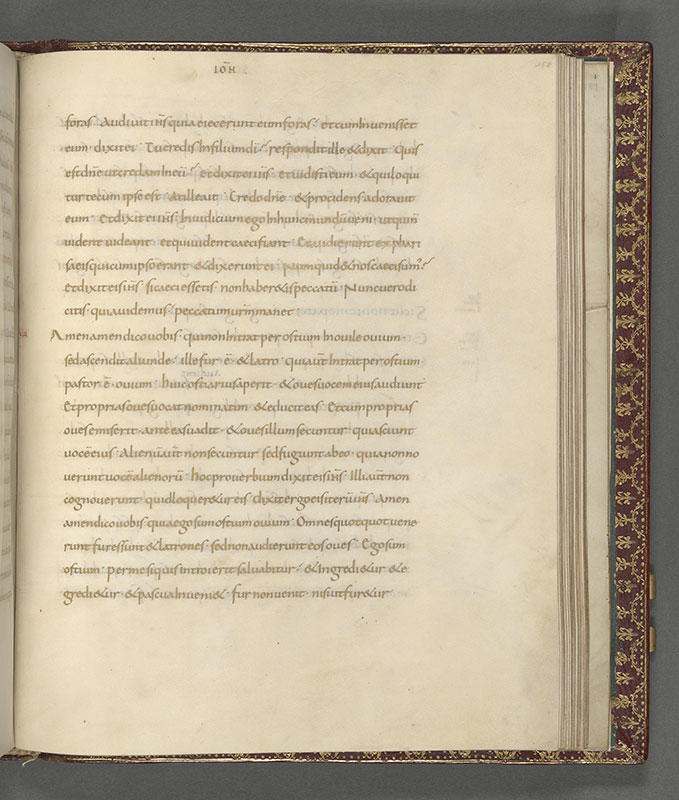 IOH̄
foras· Audiuit ih̄s quia eiecerunt eum foras· et cum inuenisset
eum· dixit ei· Tu credis in filium dī· respondit ille & dixit· Quis
est dn̄e ut credam in eū· et dixit ei ih̄s· et uidisti eum· & qui loqui
tur tecum ipse est· At ille ait· Credo dn̄e· & procidens adorauit
eum· Et dixit ei ih̄s· In iudicium ego in hunc mundū ueni· ut qui nī
uident uideant· et qui uident caeci fiant· Et audierunt ex phari
saeis qui cum ipso erant· & dixerunt ei· Numquid & nos caeci sum'·
Et dixit eis ih̄s· si caeci essetis· non haber&is peccatū· Nunc uero di
citis· quia uidemus· peccatum urm̄ manet·
Amen amen dico uobis· qui non intrat per ostium in ouile ouium·
sed ascendit aliunde· ille fur ē· & latro· qui aut̄ intrat per ostium·
pastor ē· ouium· huic ostiarius aperit· & oues uocem eius audiunt
Et proprias oues uocat nominatim· & educit eas· Et cum proprias
oues emiserit· ante eas uadit· & oues illum secuntur· quia sciunt
uocē eius· Alienū aut̄ non secuntur· sed fugiunt ab eo· quia non no
uerunt uocē alienorū· hoc prouerbium dixit eis ih̄s· Illi aut̄ non
cognouerunt· quid loquer&ur eis· dixit ergo eis iterū ih̄s· Amen
amen dico uobis· quia ego sum ostium ouium· Omnes quotquot uene
runt fures sunt & latrones· sed non audierunt eos oues· Ego sum
ostium· per me si quis introierit saluabitur· & ingredi&ur· & e
gredi&ur· & pascua inueni&· fur non uenit· nisi ut fur&ur